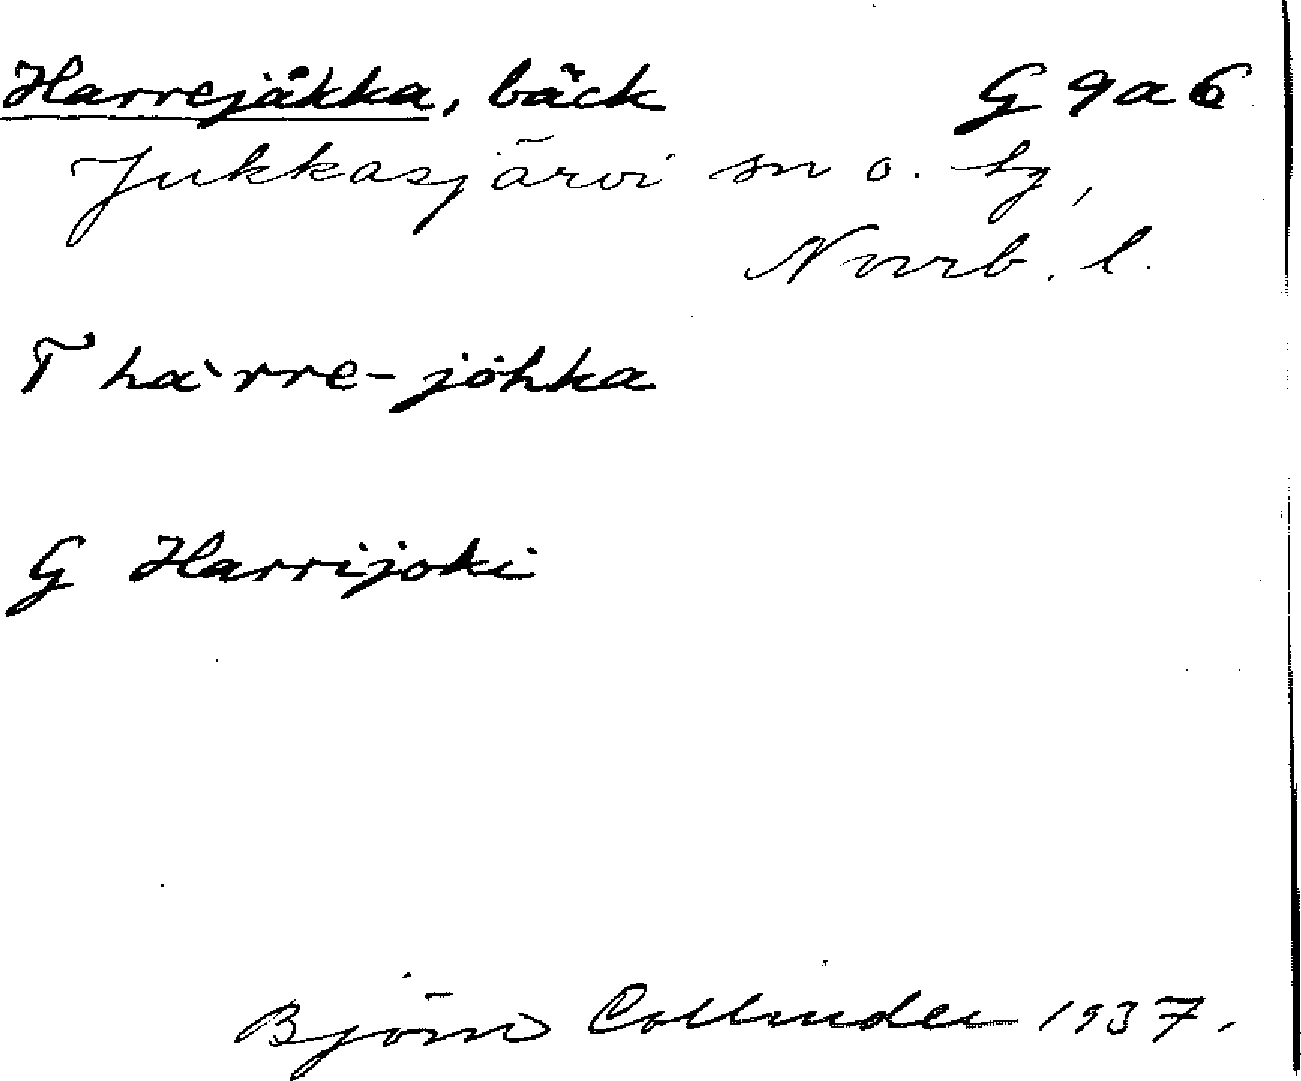 Harrejåkka, bäck G 9 a 6
Jukkasjärvi sn o. tg,
Norrb. l.
T hàrre-jȯhka
G Harrijoki
Björn Collinder 1937.